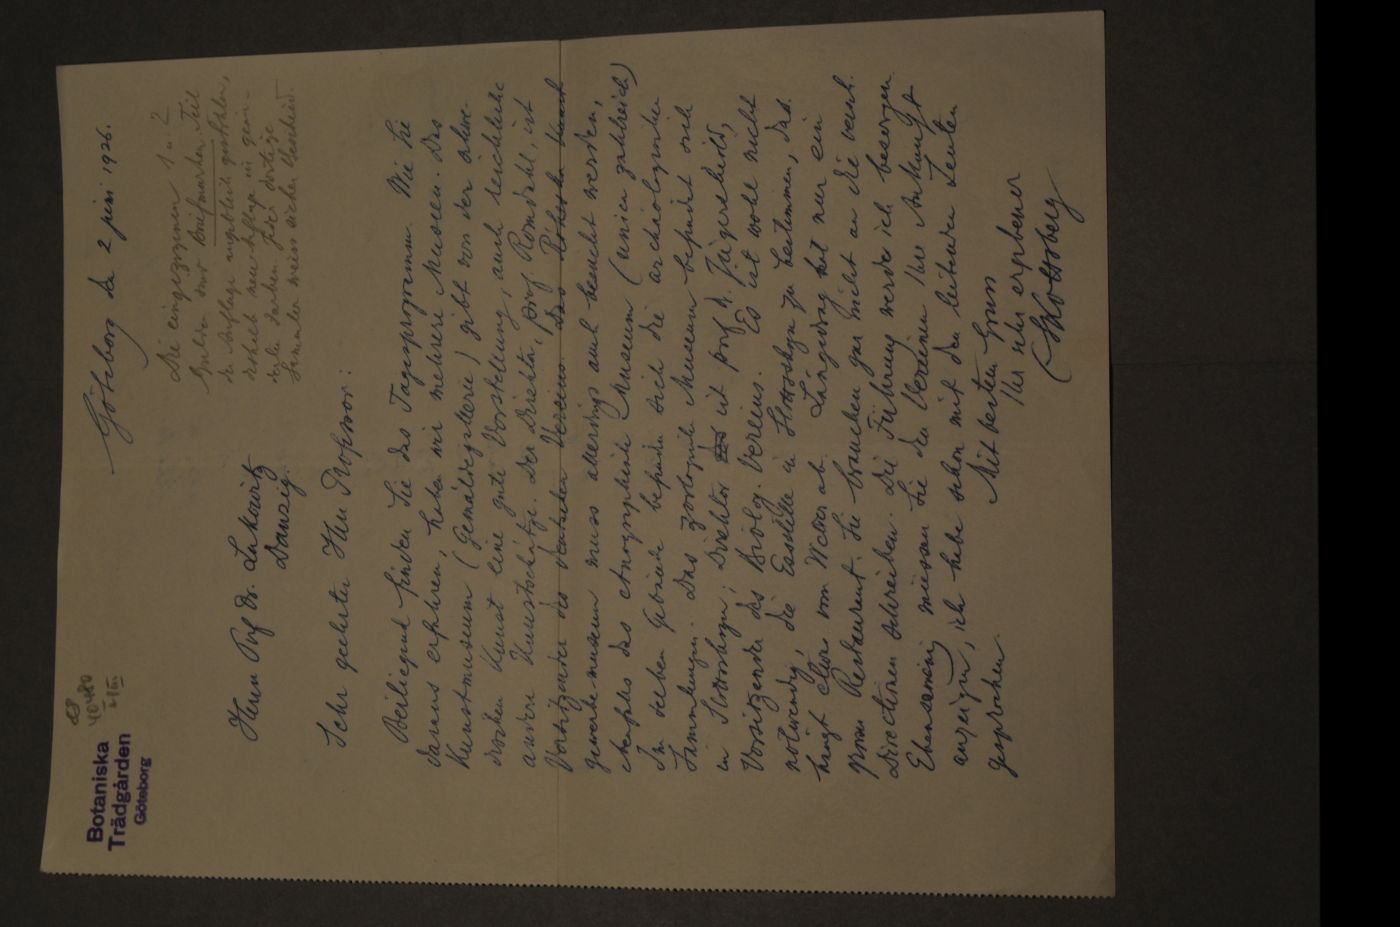 Botaniska
Trädgården
Göteborg
Göteborg den 2 juni 1926.
Die eingezogenen 1 u. 2
Gulden sind Briefmarken. Teil
der Auflage angeblich gestohlen,
deshalb neue Auflage in
den Farben. Ihre dortige
Sammler wissen sicher Bescheid.
Herrn Prof Dr. Lakowitz
Danzig.
Sehr geehrter Herr Professor:
Beiliegend finden Sie das Tagesprogramm. Wie Sie
daraus erfahren, haben wir mehrere Museen. Das
Kunstmuseum (Gemäldegallerie) gibt von der schwe-
dischen Kunst eine gute Vorstellung, auch reichliche
andere Kunstschätze. Der Direktor, prof. Romdahl, ist
Vorsitzender des deutschen Vereins. Das Röhsska Kunst
gewerbe-museum muss allerdings auch besucht werden,
ebenfalls das Ethnographische Museum (Museen zahlreich)
Im selben Gebäude befinden sich die archäologischen
Sammlungen. Das zoologische Museum befindet sich
in Slottsskogen; Direktor ist prof. d. Jägerskiöld,
Vorsitzender des Biolog. Vereins. Es ist wohl nicht
notwendig, die Esställe in Slottsskogen zu bestimmen, das
hängt alles vom Wetter ab. Långedrag hat nur ein
Restaurant. Sie brauchen gar nicht an die versch.
Directionen schreiben. Die Führung werde ich besorgen.
müssen Sie den Vereinen Ihre Ankunft
anzeigen, ich habe schon mit den leitenden Leuten
gesprochen.
Mit bestem Gruss
Ihr sehr ergebener
C Skottsberg